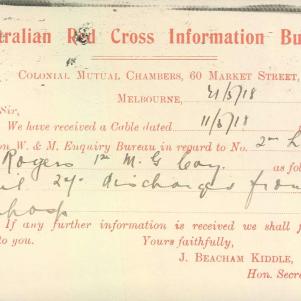 tralian Red Cross Information Bu
COLONIAL MUTUAL CHAMBERS, 60 MARKET STREET,
MELBOURNE, 21/5/18
Sir,
We have received a Cable dated 11/5/18
on W. & M. Enquiry Bureau in regard to No. 2nd L
Rogers 1st M. G Coy. as fo
il 24. discharged from
hosp
If any further information is received we shall f
to you. Yours faithfully,
J. BEACHAM KIDDLE,
Hon. Secre